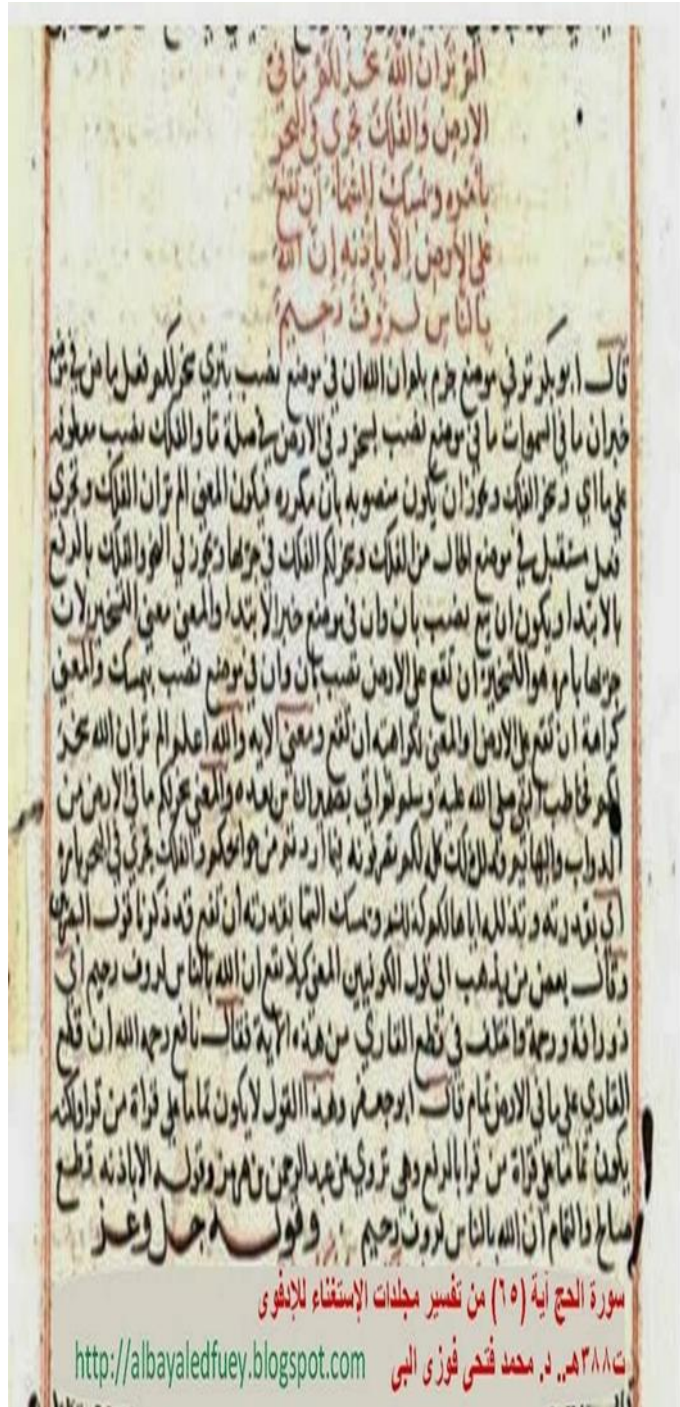 الم تر ان الله سخر لكم ما في
الارض والفلك تجري في البحر
بامره ويمسك السماء ان تقع
على الارض الا باذنه ان الله
بالناس لروف رحيم
قال ابو بكر تر في موضع جزم بلم وان الله ان في موضع نصب بترى سخر لكم فعل ماض في موضع
خبران ما في السموات ما في موضع نصب لسخر وفي الارض في صلة ما والفلك نصب معطوف
على ما اي وسخر الفلك ويجوز ان يكون منصوبه بان مكرره فيكون المعنى الم تر ان الفلك وتجري
فعل مستقبل في موضع الحال من الفلك وسخر لكم الفلك في جريها ويجوز في النحو والفلك بالرفع
بالابتدا ويكون ان تقع نصب بان وان في موضع خبر الابتدا والمعنى معنى التسخير لان
جريها بامره هو التسخير ان تقع على الارض نصب بان وان في موضع نصب بيمسك والمعنى
كراهة ان تقع على الارض والمعنى لكراهته ان تقع ومعنى الايه والله اعلم الم تر ان الله سخر
لكم فخاطب النبي صلى الله عليه وسلم الناس بعده والمعنى سخر لكم ما في الارض من
الدواب والبهايم وذلك كله لكم تصرفونه فيما اردتم من حوائجكم والفلك تجري في البحر بامره
اي بقدرته وتذلـله اياها لكم كذلك ويمسك السما بقدرته ان تقع قد ذكرنا قول البصري
وقال بعض من يذهب الى قول الكوفيين المعنى كيلا تقع ان الله بالناس لروف رحيم اي
ذو رافة ورحمة واختلف في قطع القاري من هذه الاية فقال نافع رحمه الله ان قطع
القاري على ما في الارض تمام قال ابو جعفر وهذا القول لا يكون تماما على قراة من قرا ولكنه
يكون تماما على قراة من قرا بالرفع وهي تروى عن عبد الرحمن بن هرمز وقوله الا باذنه قطع
صالح والتمام ان الله بالناس لروف رحيم وقولـه جل وعز
سورة الحج آية (٦٥) من تفسير مجلدات الإستغناء للإدفوى
ت٣٨٨هـ.. د. محمد فتحى فوزى البى http://albayaledfuey.blogspot.com